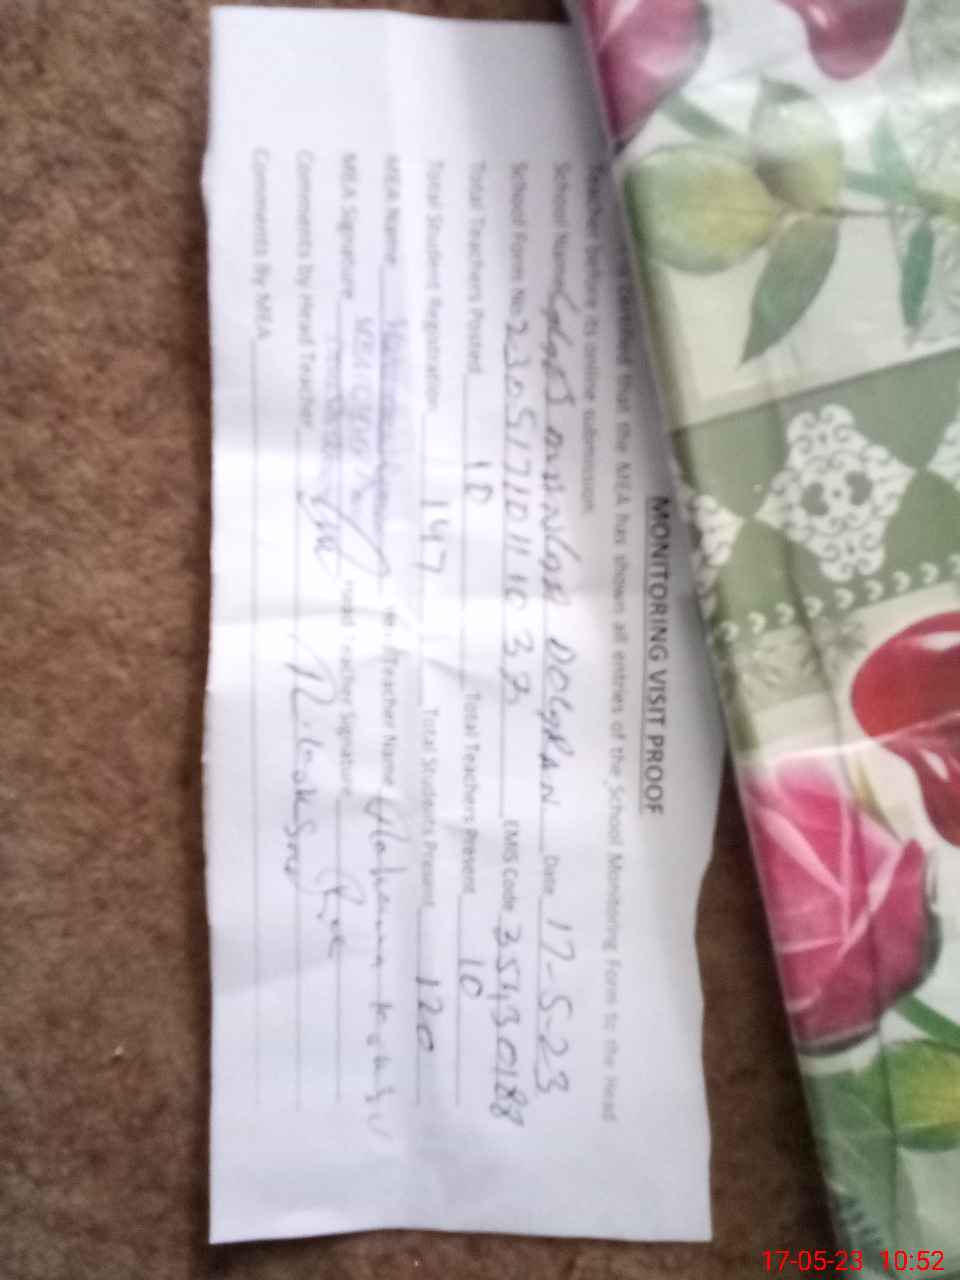 MONITORING VISIT PROOF
certified that the MEA has shown all entries of the School Monitoring Form to the Head
Teacher before its online submission.
School Name DOGRAN Date 17-5-23
School Form No: 2305171011037 EMIS Code 35430188
Total Teachers Posted 10 Total Teachers Present 10
Total Student Registration 147 Total Students Present 120
MEA Name Teacher Name
MEA Signature Head Teacher Signature
Comments by Head Teacher
Comments By MEA
17-05-23 10:52